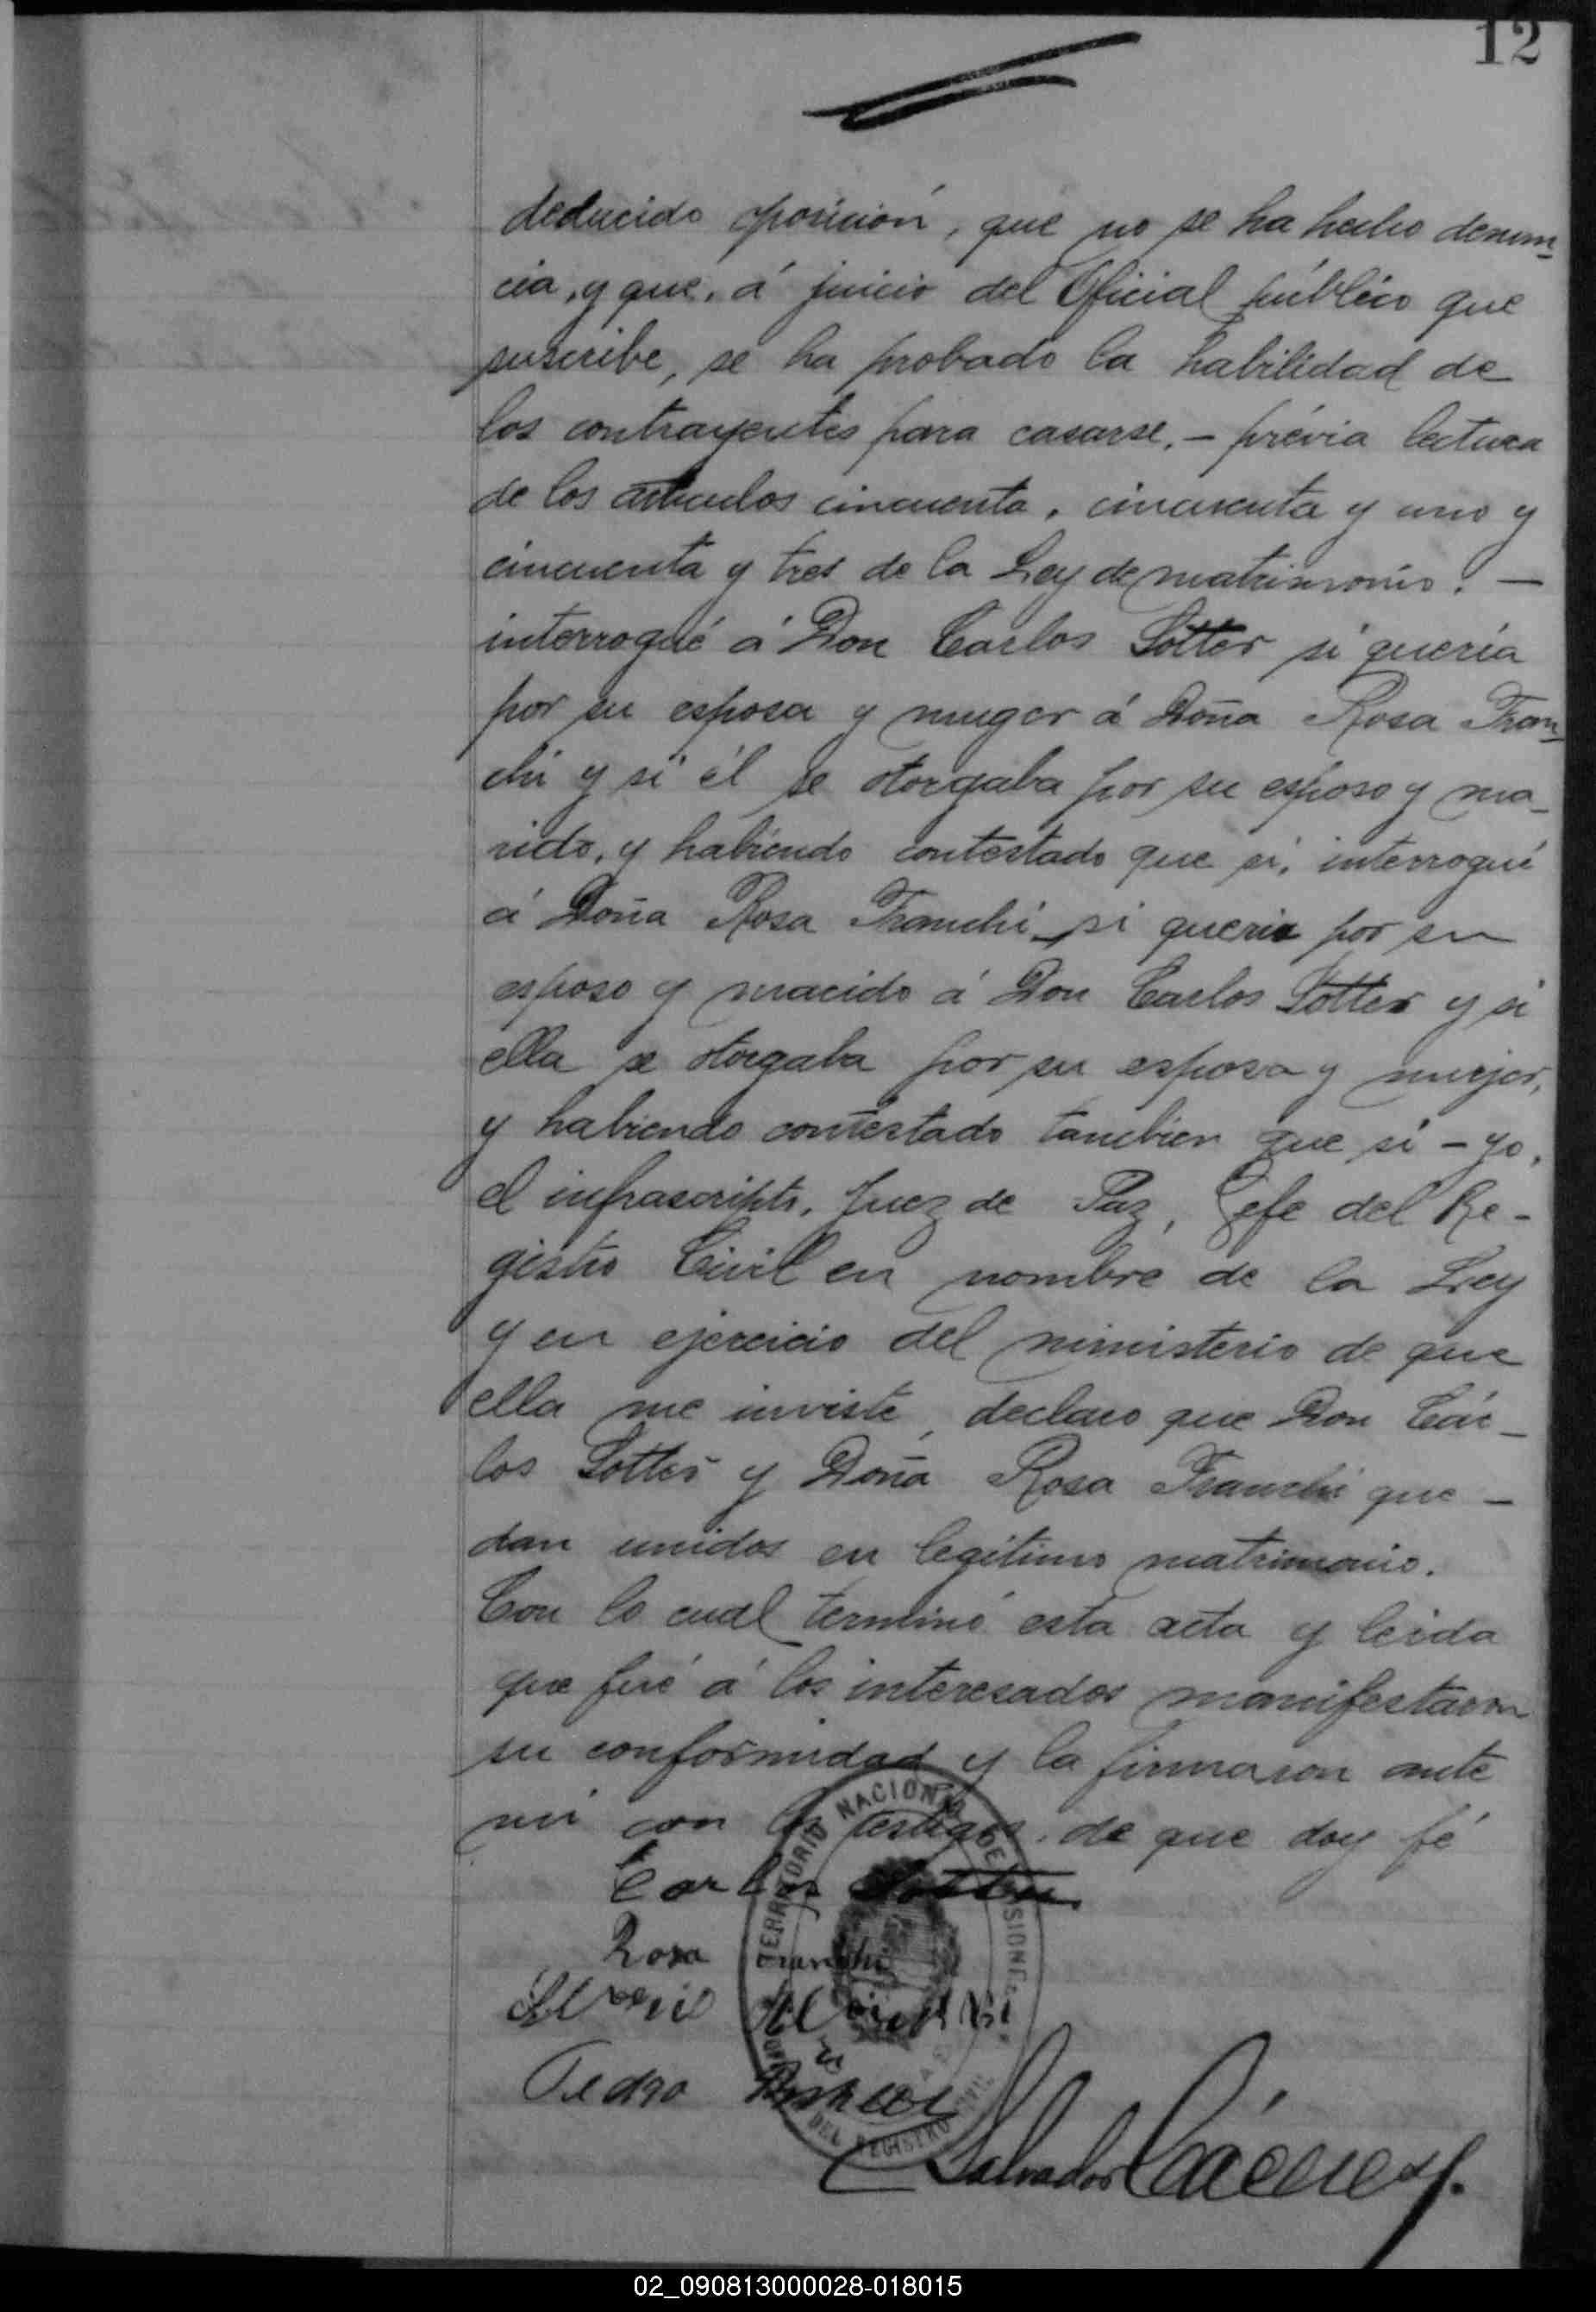 12
deducido oposición, que no se ha hecho denun=
cia, y que, á juicio del Oficial público que
suscribe, se ha probado la habilidad de
los contrayentes para casarse. – prévia lectura
de los articulos cincuenta, cincuenta y uno y
cincuenta y tres de la Ley de matrimonio. —
interrogué á Don Carlos Sotter si queria
por su esposa y muger á Doña Rosa Fran=
chi y si él se otorgaba por su esposo y ma-
rido, y habiendo contestado que si, interrogué
á Doña Rosa Franchi si queria por su
esposo y marido á Don Carlos Sotter y si
ella se otorgaba por su esposa y mujer,
y habiendo contestado tambien que si – yo,
el infrascripto, Juez de Paz, Gefe del Re-
gistro Civil en nombre de la Ley
y en ejercicio del ministerio de que
ella me inviste, declaro que Don Cár-
los Sotter y Doña Rosa Franchi que-
dan unidos en legítimo matrimonio.
Con lo cual terminó esta acta y leida
que fué á los interesados manifestaron
su conformidad y la firmaron ante
mi con los testigos, de que doy fé
Carlos Sotter
Rosa Franchi
Pedro
Salvador Cáceres
TERRITORIO NACIONAL DE MISIONES
DEL REGISTRO CIVIL
02_090813000028-018015